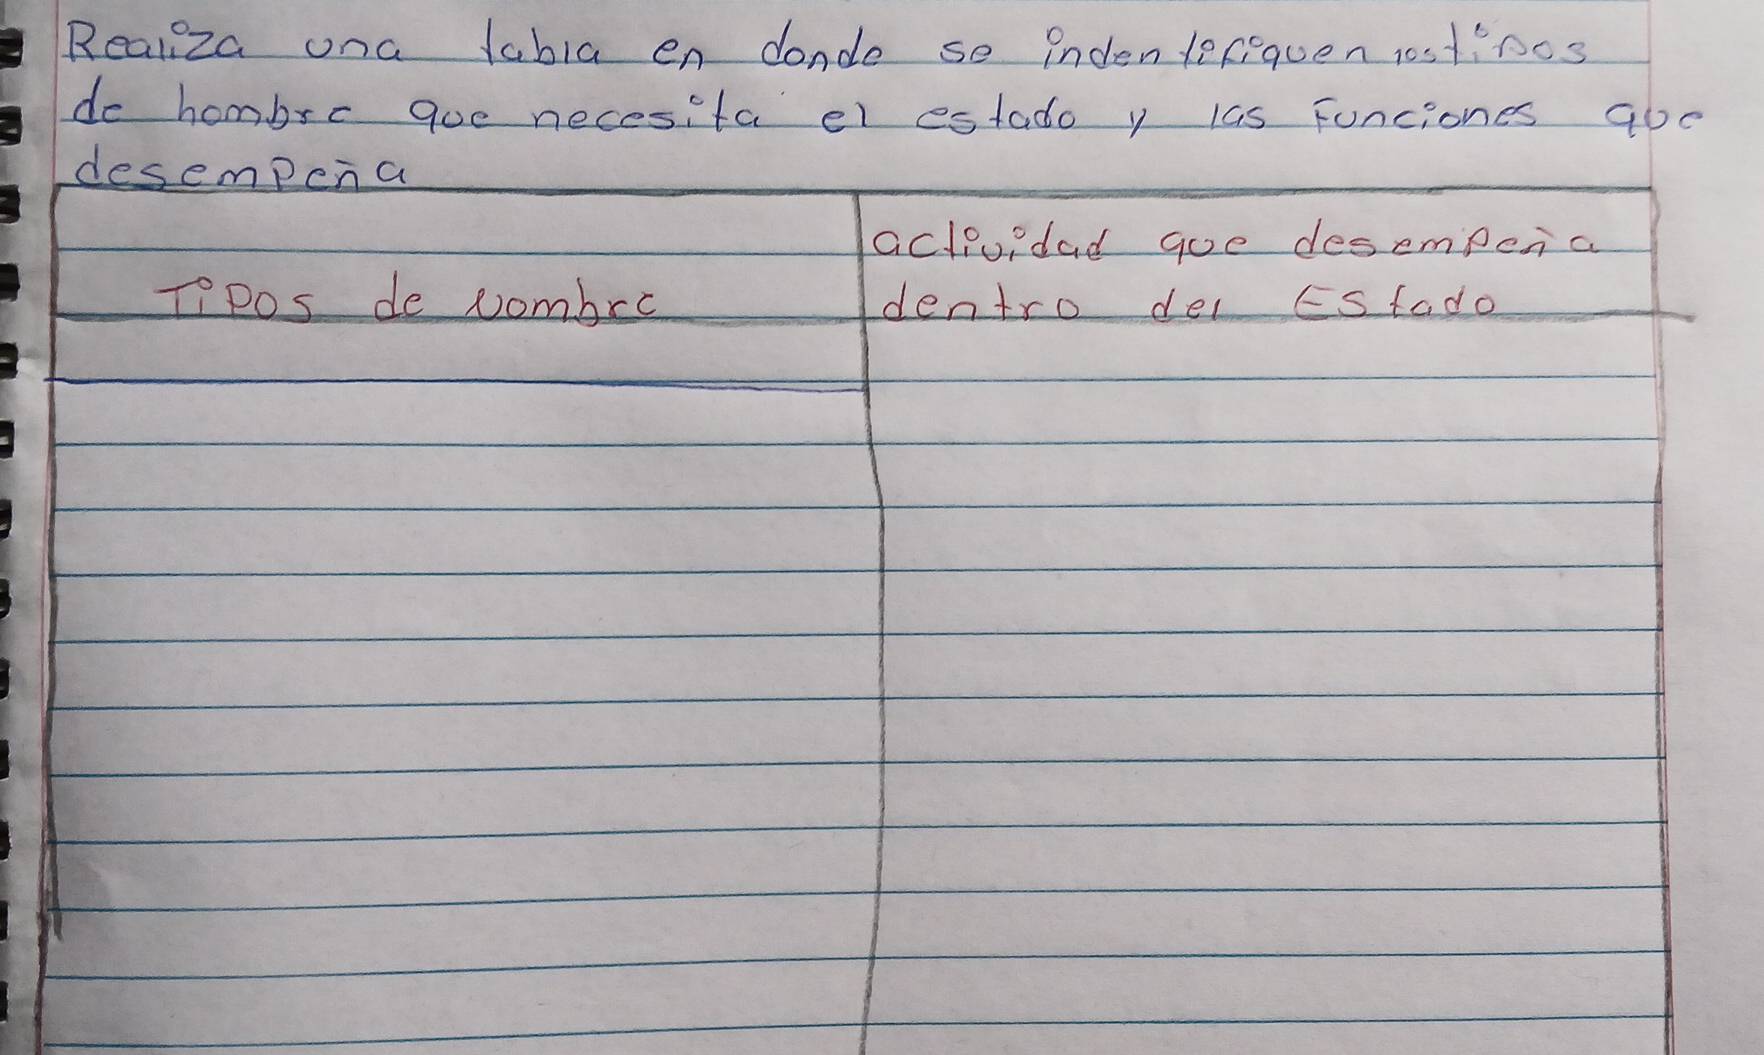 Realiza una tabla en donde se indentifiquen los tipos
de hombre que necesita el estado y las Funciones que
desempeña
Tipos de Hombre
actividad que desempeña
dentro del Estado